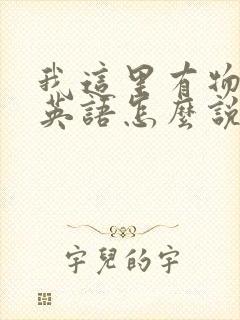 我這里有物
英語怎麼說
字兒的字